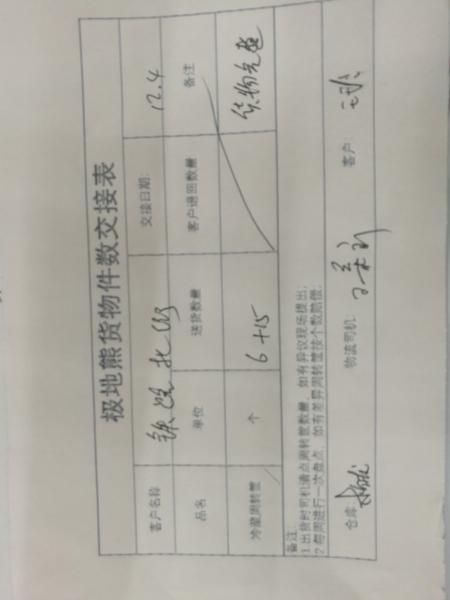 极地熊货物件数交接表
客户名称 铁 北街 交接日期: 12.4
品名 单位 送货数量 客户退回数量 备注
冷藏周转筐 个 6+15 货物先送
备注:
1.出货时司机请点周转筐数量,如有异议现场提出;
2.每周进行一次盘点,如有差异周转筐按个数赔偿;
仓库: 物流司机: 客户: